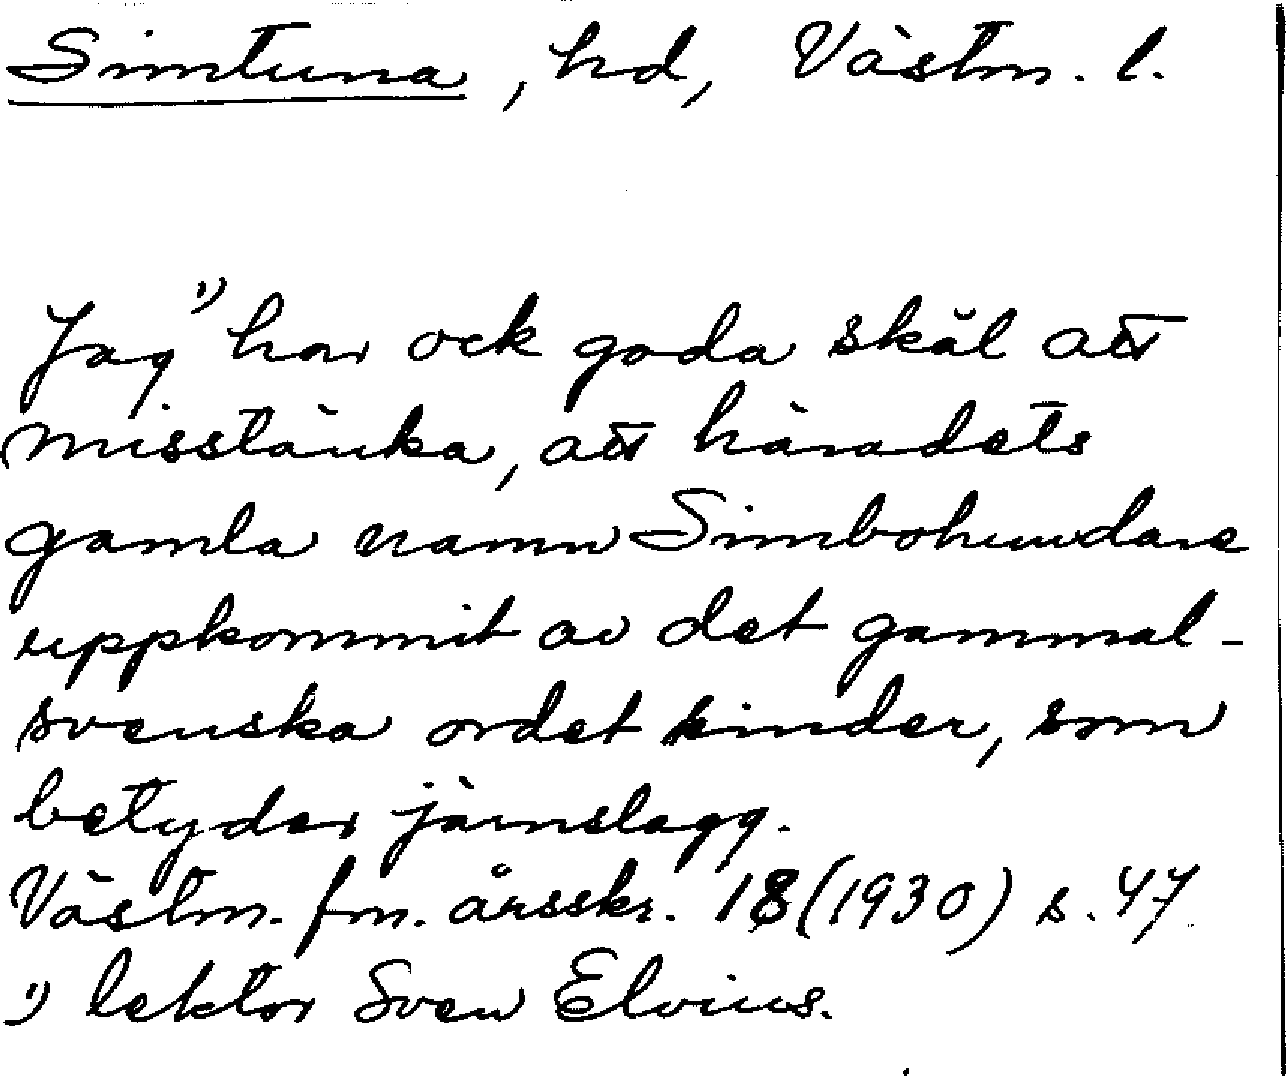 Simtuna, hd, Västm. l.
Jag ¹⁾ har ock goda skäl att
misstänka, att häradets
gamla namn Simbohundare
uppkommit av det gammal-
svenska ordet sinder, som
betyder järnslagg.
Västm. fm. årsskr. 18 (1930) s. 47
¹⁾ lektor Sven Elvius.